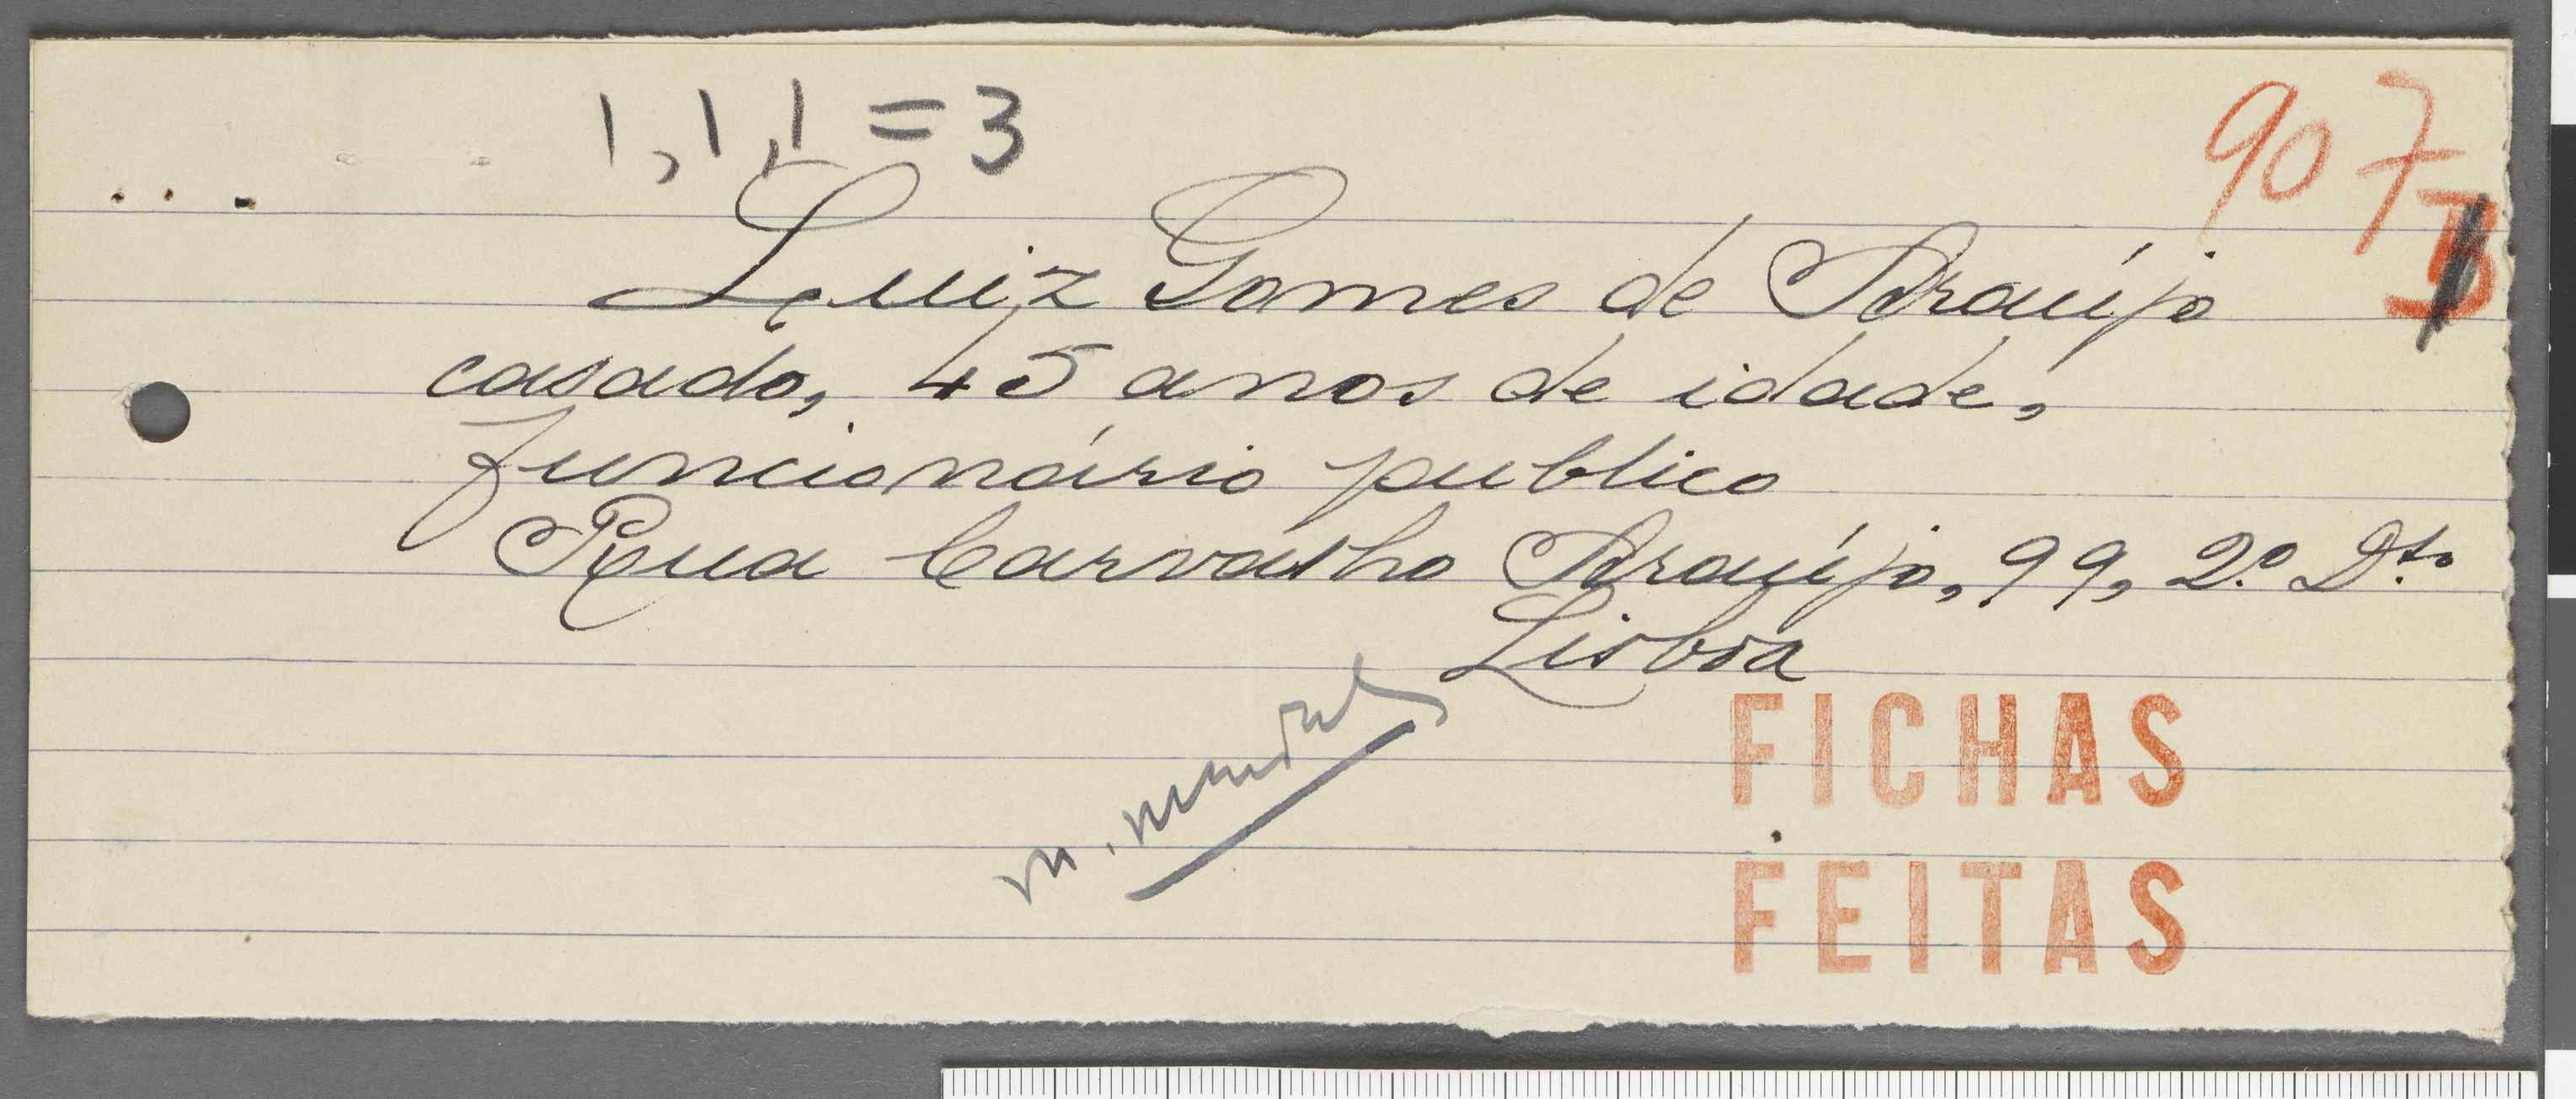 1,1,1 = 3
907
Luiz Gomes de Araújo
casado, 45 anos de idade,
funcionário publico
Rua Carvalho Araújo, 99, 2.º D.to
Lisboa
FICHAS
FEITAS